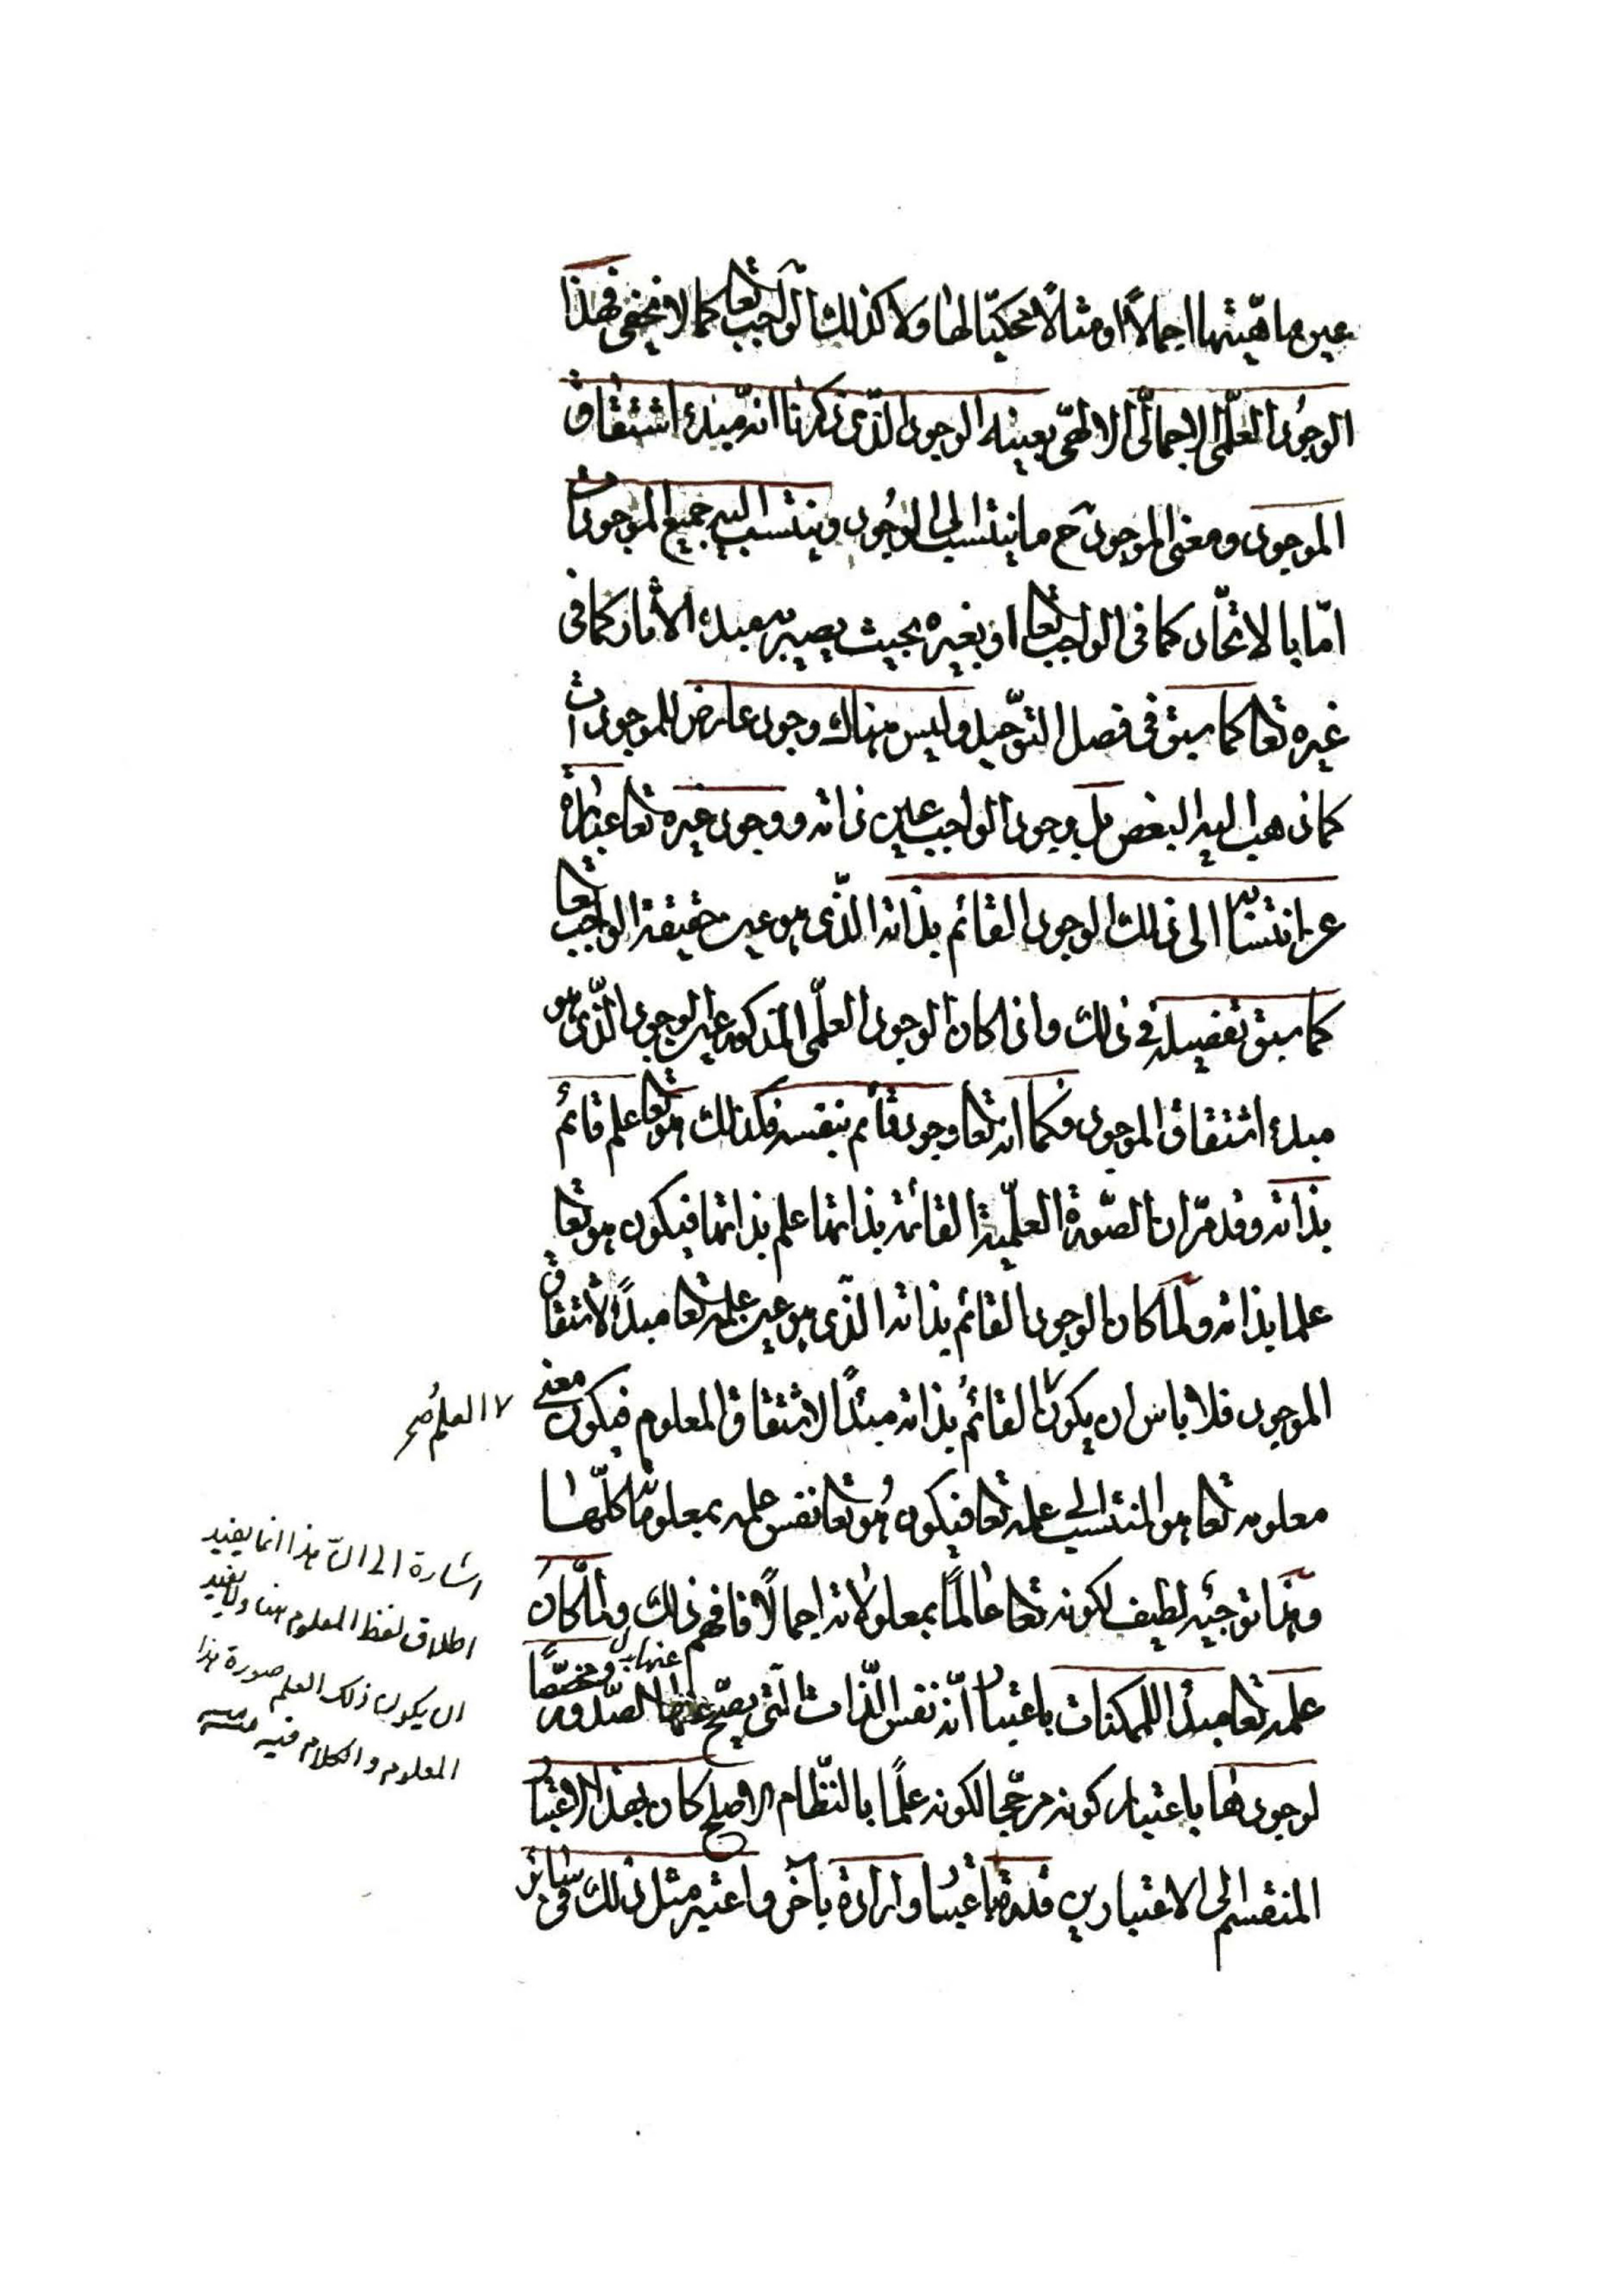 عين ماهيتها اجمالاً او مثالاً محكيّا لها ولا كذلك الواجب تعا كما لا يخفى فهذا
الوجود العلمّى الاجمالّى الالهىّ بعينه الوجود الذّى ذكرنا انه مبدء اشتقاق
الموجود ومعنى الموجود ح ما ينتسب الى الوجُود وينتسب اليه جميع الموجودات
امّا بالاتحّاد كما فى الواجب تعا او بغيره بحيث يصير مبدء الاثار كما فى
غيره تعا كما سبق فى فصل التوّحيد وليس هناك وجود عارض للموجودات
كما ذهب اليه البعض بل وجود الواجب عين ذاته ووجود غيره تعا عبارة
عن انتسابه الى ذلك الوجود القائم بذاته الذّى هو عين حقيقة الواجب تعا
كما سبق تفصيله فى ذلك واذا كان الوجود العلمّى المذكور عين الوجود الذّى هو
مبدء اشتقاق الموجود فكما انه تعا وجود قائم بنفسه فكذلك هو تعا علم قائم
بذاته وقد مرّ ان الصّورة العلميّة القائمة بذاتها علم بذاتها فيكون هو تعا
علما بذاته ولمّا كان الوجود القائم بذاته الذّى هو عين علمه تعا مبدأً لاشتقاق
الموجود فلا باس ان يكون ٧ القائمُ بذاته مبدًأ لاشتقاق المعلوم فيكون معنى
٧ العلمُ صح
معلومه تعا هو المنتسب الى علمه تعا فيكون هُو تعا نفس علمه بمعلوماته كلّها
وهذا توجيُه لطيف لكونه تعا عالمًا بمعلولاته اجمالًا فافهم ذلك ولمّا كان
علمه تعا مبدأ للممكنات باعتبار انّه نفس الذّات التى يصّح عنها الصّدور ومخصّصًا
لوجودها باعتبار كونه مرجّحا لكونه علمًا بالنّظام الاصلح كان بهذا الاعتبار
المنقسم الى الاعتبارين قدرة باعتبار وارادة بآخر واعتبر مثل ذلك فى سائر
اشارة الى انّ هذا انما يفيد
اطلاق لفظ المعلوم هنا ولا يفيد
ان يكون ذلك العلم صورة هذا
المعلوم والكلام فيه منه